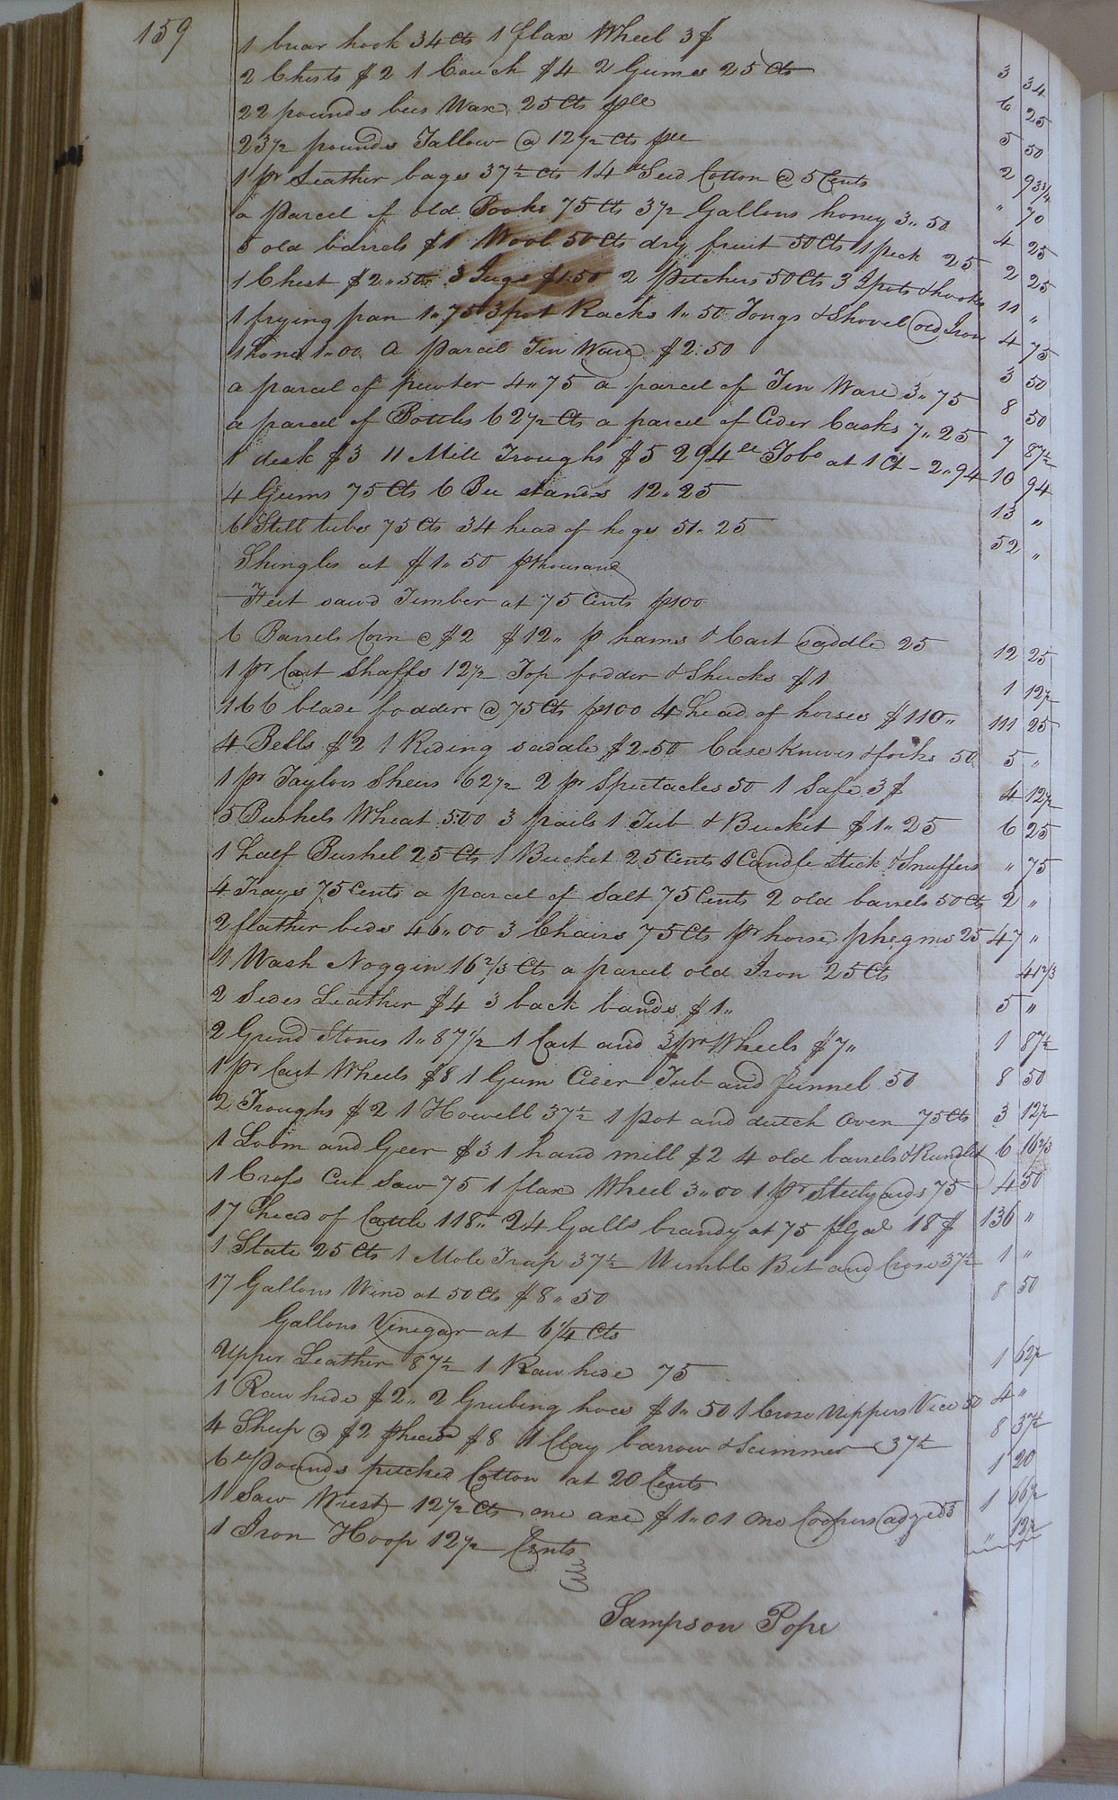 159
1 briar hook 34 Cts 1 flax Wheel 3$ 3 34
2 Chests $2 1 Couch $4 2 Gums 25 Cts 6 25
22 pounds bees Wax 25 Cts 5 50
23½ pounds Tallow @ 12½ Cts 2 93¾
1 pr Leather bags 37½ Cts 14 Seed Cotton @ 5 Cents " 70
a parcel of old Books 75 Cts 3½ Gallons honey 3.. 50 4 25
5 old barrels $1 Wool 50 Cts dry fruit 50 Cts 1 peck 25 2 25
1 Chest $2.. 50 3 Jugs $1.50 2 pitchers 50 Cts 3 pots & hooks 11 "
1 frying pan 1.. 75 3 pot Racks 1.. 50 Tongs & Shovel old Iron 4 75
1 hone 1..00 a parcel Tin Ware $2.50 3 50
a parcel of pewter 4.. 75 a parcel of Tin Ware 3.. 75 8 50
a parcel of Bottles 62½ Cts a parcel of Cider Casks 7.. 25 7 87½
1 desk $3 11 Mill Troughs $5 294 Tobo at 1 Ct – 2..94 10 94
4 Gums 75 Cts 6 Bee stands 12..25 13 "
6 Still tubs 75 Cts 34 head of hogs 51.. 25 52 "
Shingles at $1.. 50 p thousand
Feet sawd Timber at 75 Cents p 100
6 Barrels Corn @ $2 $12.. p hams & Cart saddle 25 12 25
1 pr Cart Shafts 12½ Top fodder & Shucks $1 1 12½
166 blade fodder @ 75 Cts p100 4 head of horses $110.. 111 25
4 Bells $2 1 Riding saddle $2.50 Case Knives & forks 50 5 "
1 pr Taylors Shears 62½ 2 pr Spectacles 50 1 Safe 3$ 4 12½
5 Bushels Wheat 5.00 3 pails 1 Tub & Bucket $1.. 25 6 25
1 half Bushel 25 Cts 1 Bucket 25 Cents 1 Candle Stick & Snuffers " 75
4 Trays 75 Cents a parcel of Salt 75 Cents 2 old barrels 50 Cts 2 "
2 feather beds 46..00 3 Chairs 75 Cts pr horse phegms 25 47 "
1 Wash Noggin 16⅔ Cts a parcel old Iron 25 Cts 41⅔
2 Sides Leather $4 3 back bands $1.. 5 "
2 Grind Stones 1.. 87½ 1 Cart and Wheels $7.. 1 87½
1 pr Cart Wheels $8 1 Gum Cider Tub and funnel 50 8 50
2 Troughs $2 1 Howell 37½ 1 pot and dutch Oven 75 Cts 3 12½
1 Loom and Geer $3 1 hand mill $2 4 old barrels & Rundlet 6 16⅔
1 Cross Cut Saw 75 1 flax Wheel 3..00 1 pr Steelyards 75 4 50
17 head of Cattle 118.. 24 Galls brandy at 75 p Gal 18$ 136 "
1 Slate 25 Cts 1 Mole Trap 37½ Wimble Bit and Cross 37½ 1 "
17 Gallons Wine at 50 Cts $8.. 50 8 50
Gallons Vinegar at 6¼ Cts
Upper Leather 87½ 1 Raw hide 75 1 62½
1 Raw hide $2.. 2 Grubing hoes $1.. 50 1 Croze Nippers Vice 50 4 "
4 Sheep @ $2 p head $8 1 Clay barrow & Scimmer 37½ 8 37½
6 pounds picked Cotton at 20 Cents 1 20
1 Saw Wrest 12½ Cts one axe $1..01 one Coopers adze 53 1 66½
1 Iron Hoop 12½ Cents " 12½
Sampson Pope